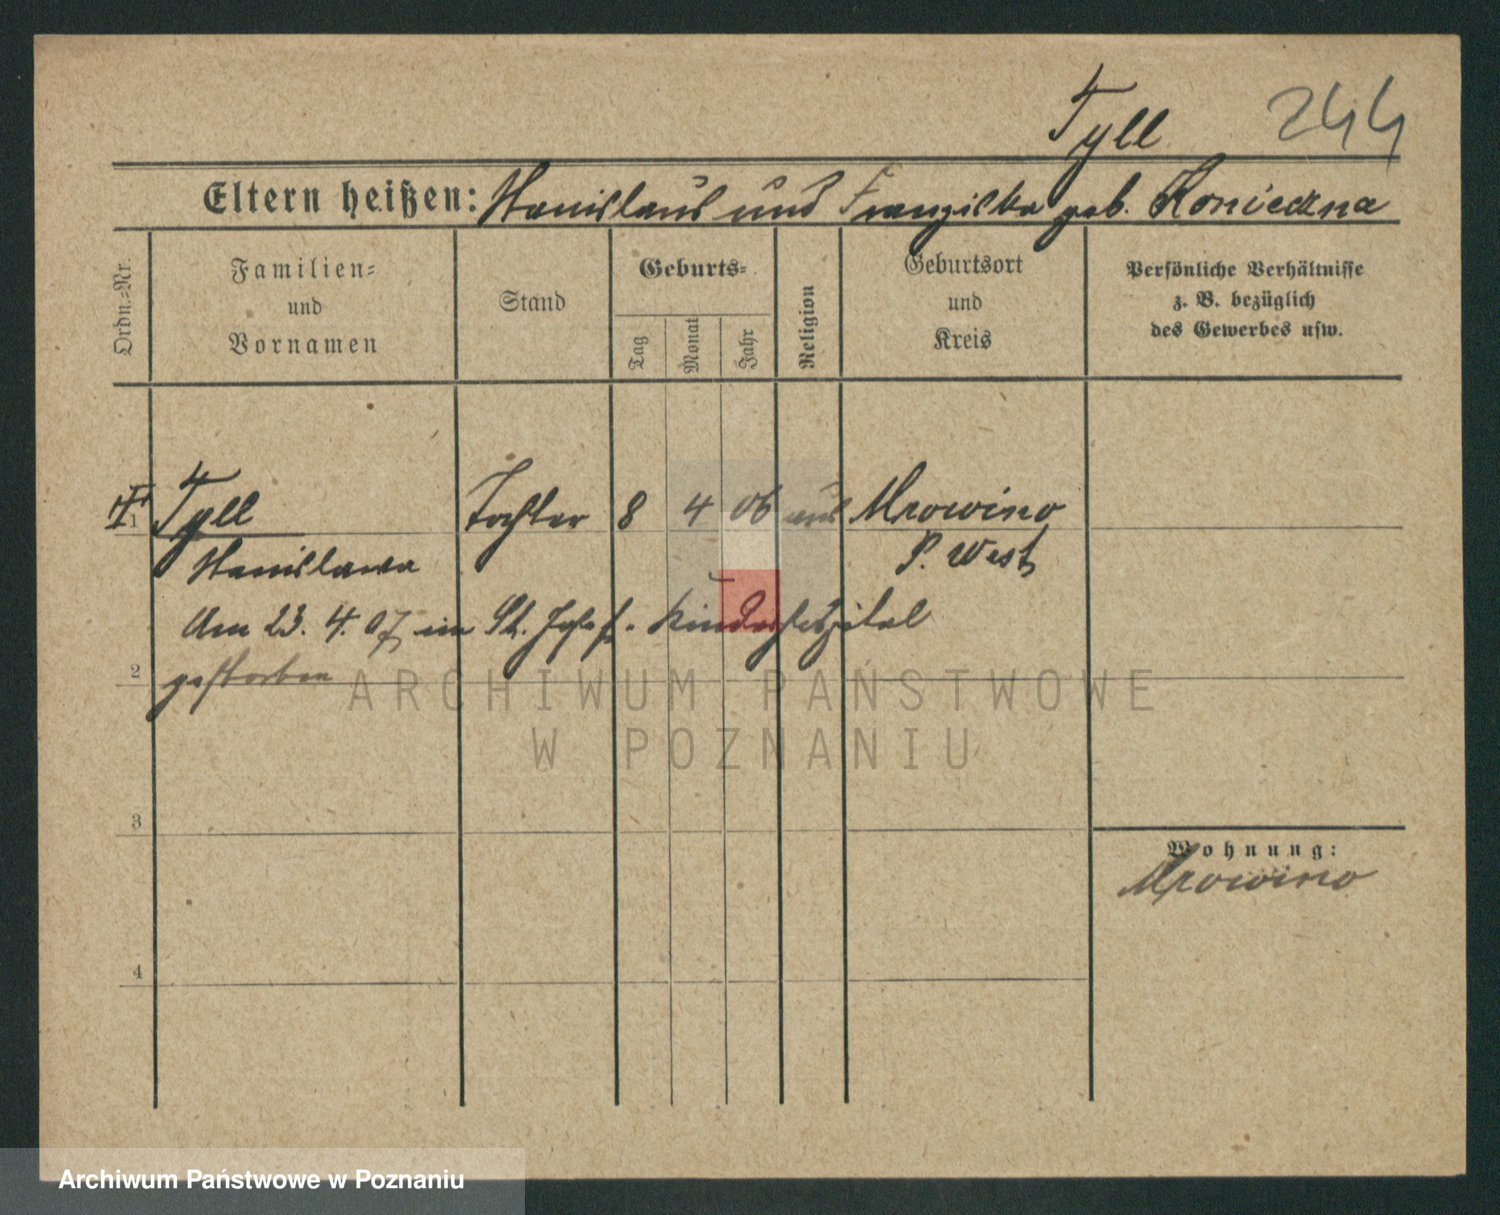 Tyll 244
Eltern heißen: Stanislaus und Franziska geb. Konieczna
Ordn.-Nr.
Familien-
und
Vornamen
Stand
Geburts-
Tag
Monat
Jahr
Religion
Geburtsort
und
Kreis
Persönliche Verhältnisse
z. B. bezüglich
des Gewerbes usw.
1 Tyll Tochter 8 4 06 aus Mrowino
Stanislawa P. West
Am 23. 4. 07 im St. Josef-Kinderhospital
2 gestorben
ARCHIWUM PAŃSTWOWE
W POZNANIU
3
Wohnung:
Mrowino
4
Archiwum Państwowe w Poznaniu